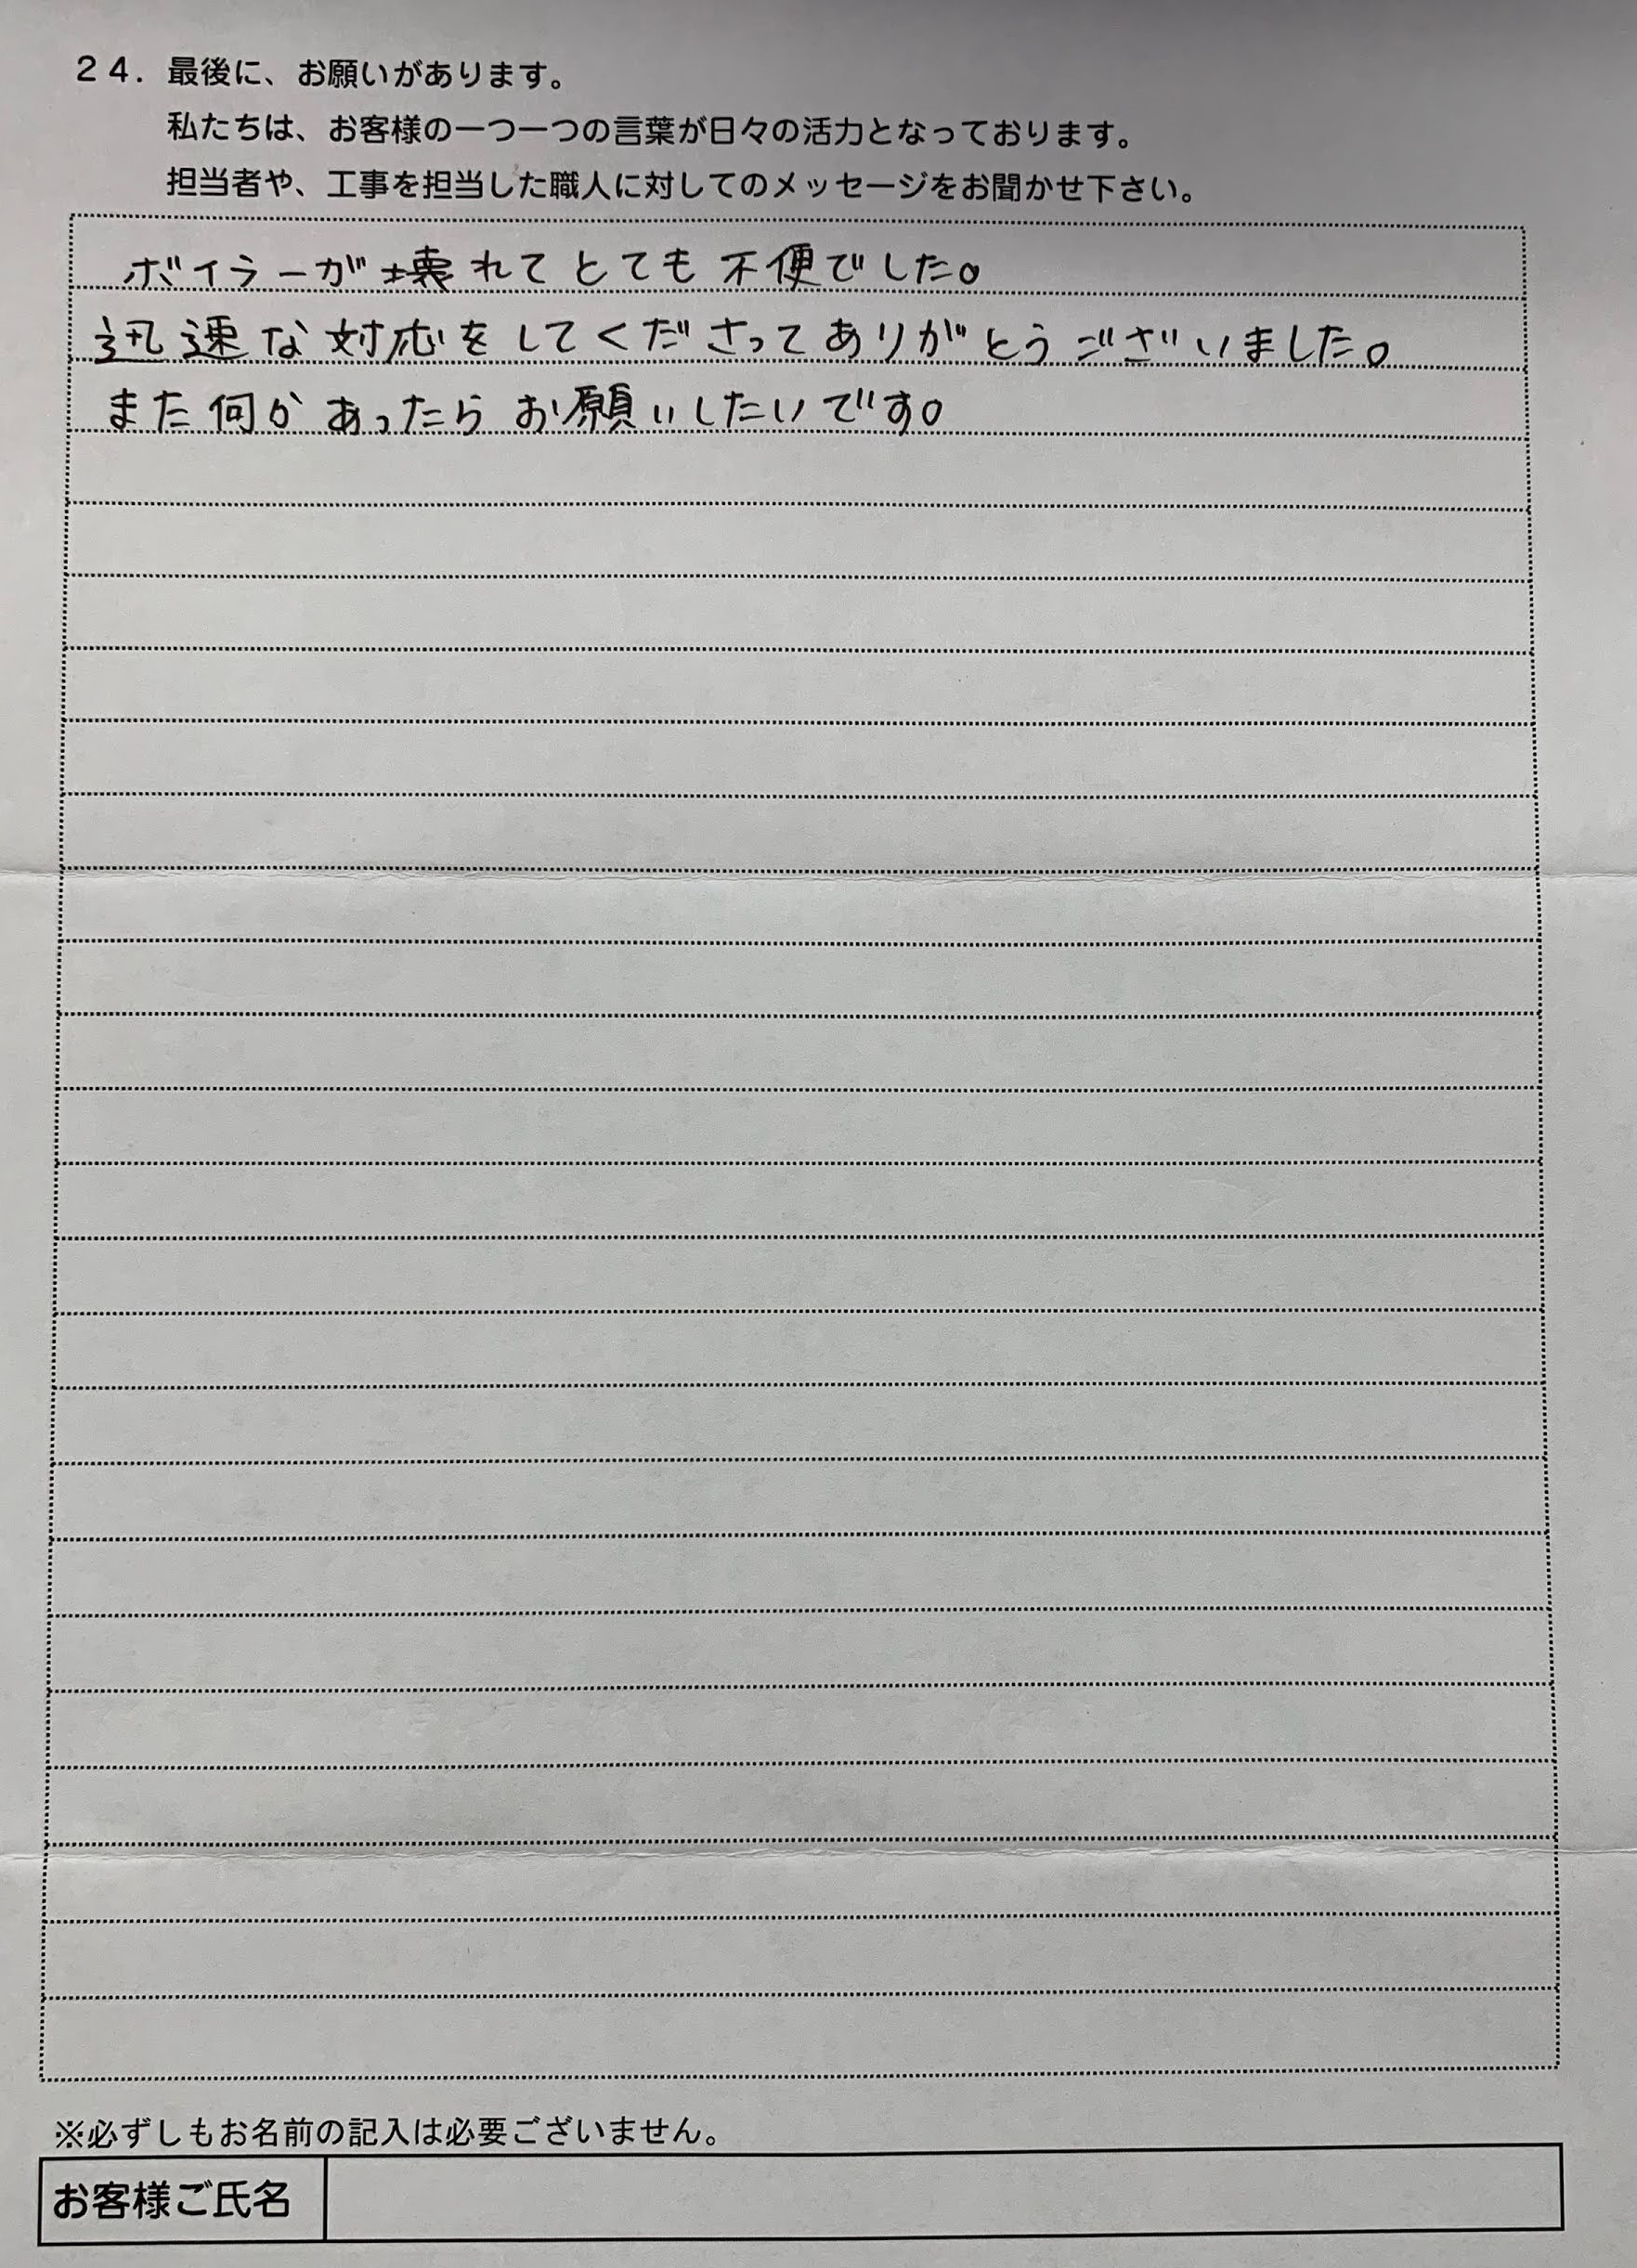 ２４．最後に、お願いがあります。
私たちは、お客様の一つ一つの言葉が日々の活力となっております。
担当者や、工事を担当した職人に対してのメッセージをお聞かせ下さい。
ボイラーが壊れてとても不便でした。
迅速な対応をしてくださってありがとうございました。
また何かあったらお願いしたいです。
※必ずしもお名前の記入は必要ございません。
お客様ご氏名